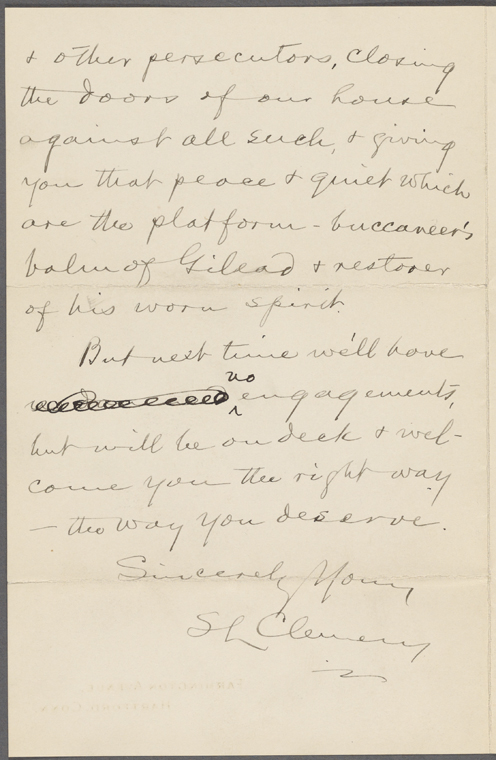 & other persecutors, closing
the doors of our house
against all such, & giving
you that peace & quiet which
are the platform-buccaneer's
balm of Gilead & restorer
of his worn spirit.
But next time we'll have
no
engagements,
but will be on deck & wel-
come you the right way
— the way you deserve.
Sincerely Yours
S L Clemens
FARMINGTON AVENUE,
HARTFORD, CONN.